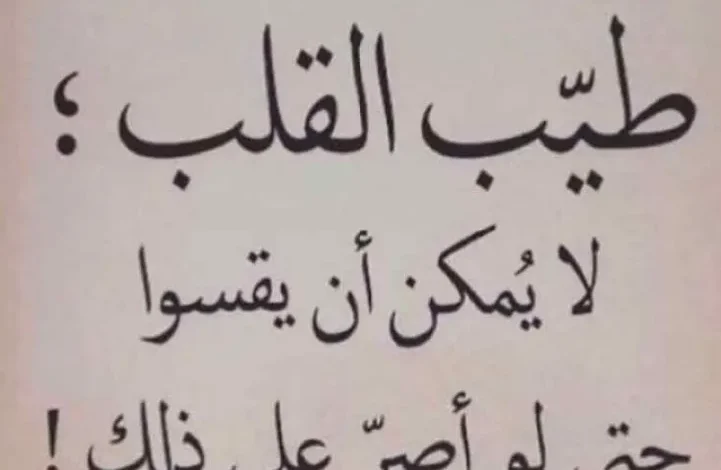 طيّب القلب ؛
لا يُمكن أن يقسوا
حتى لو أصرّ على ذلك !